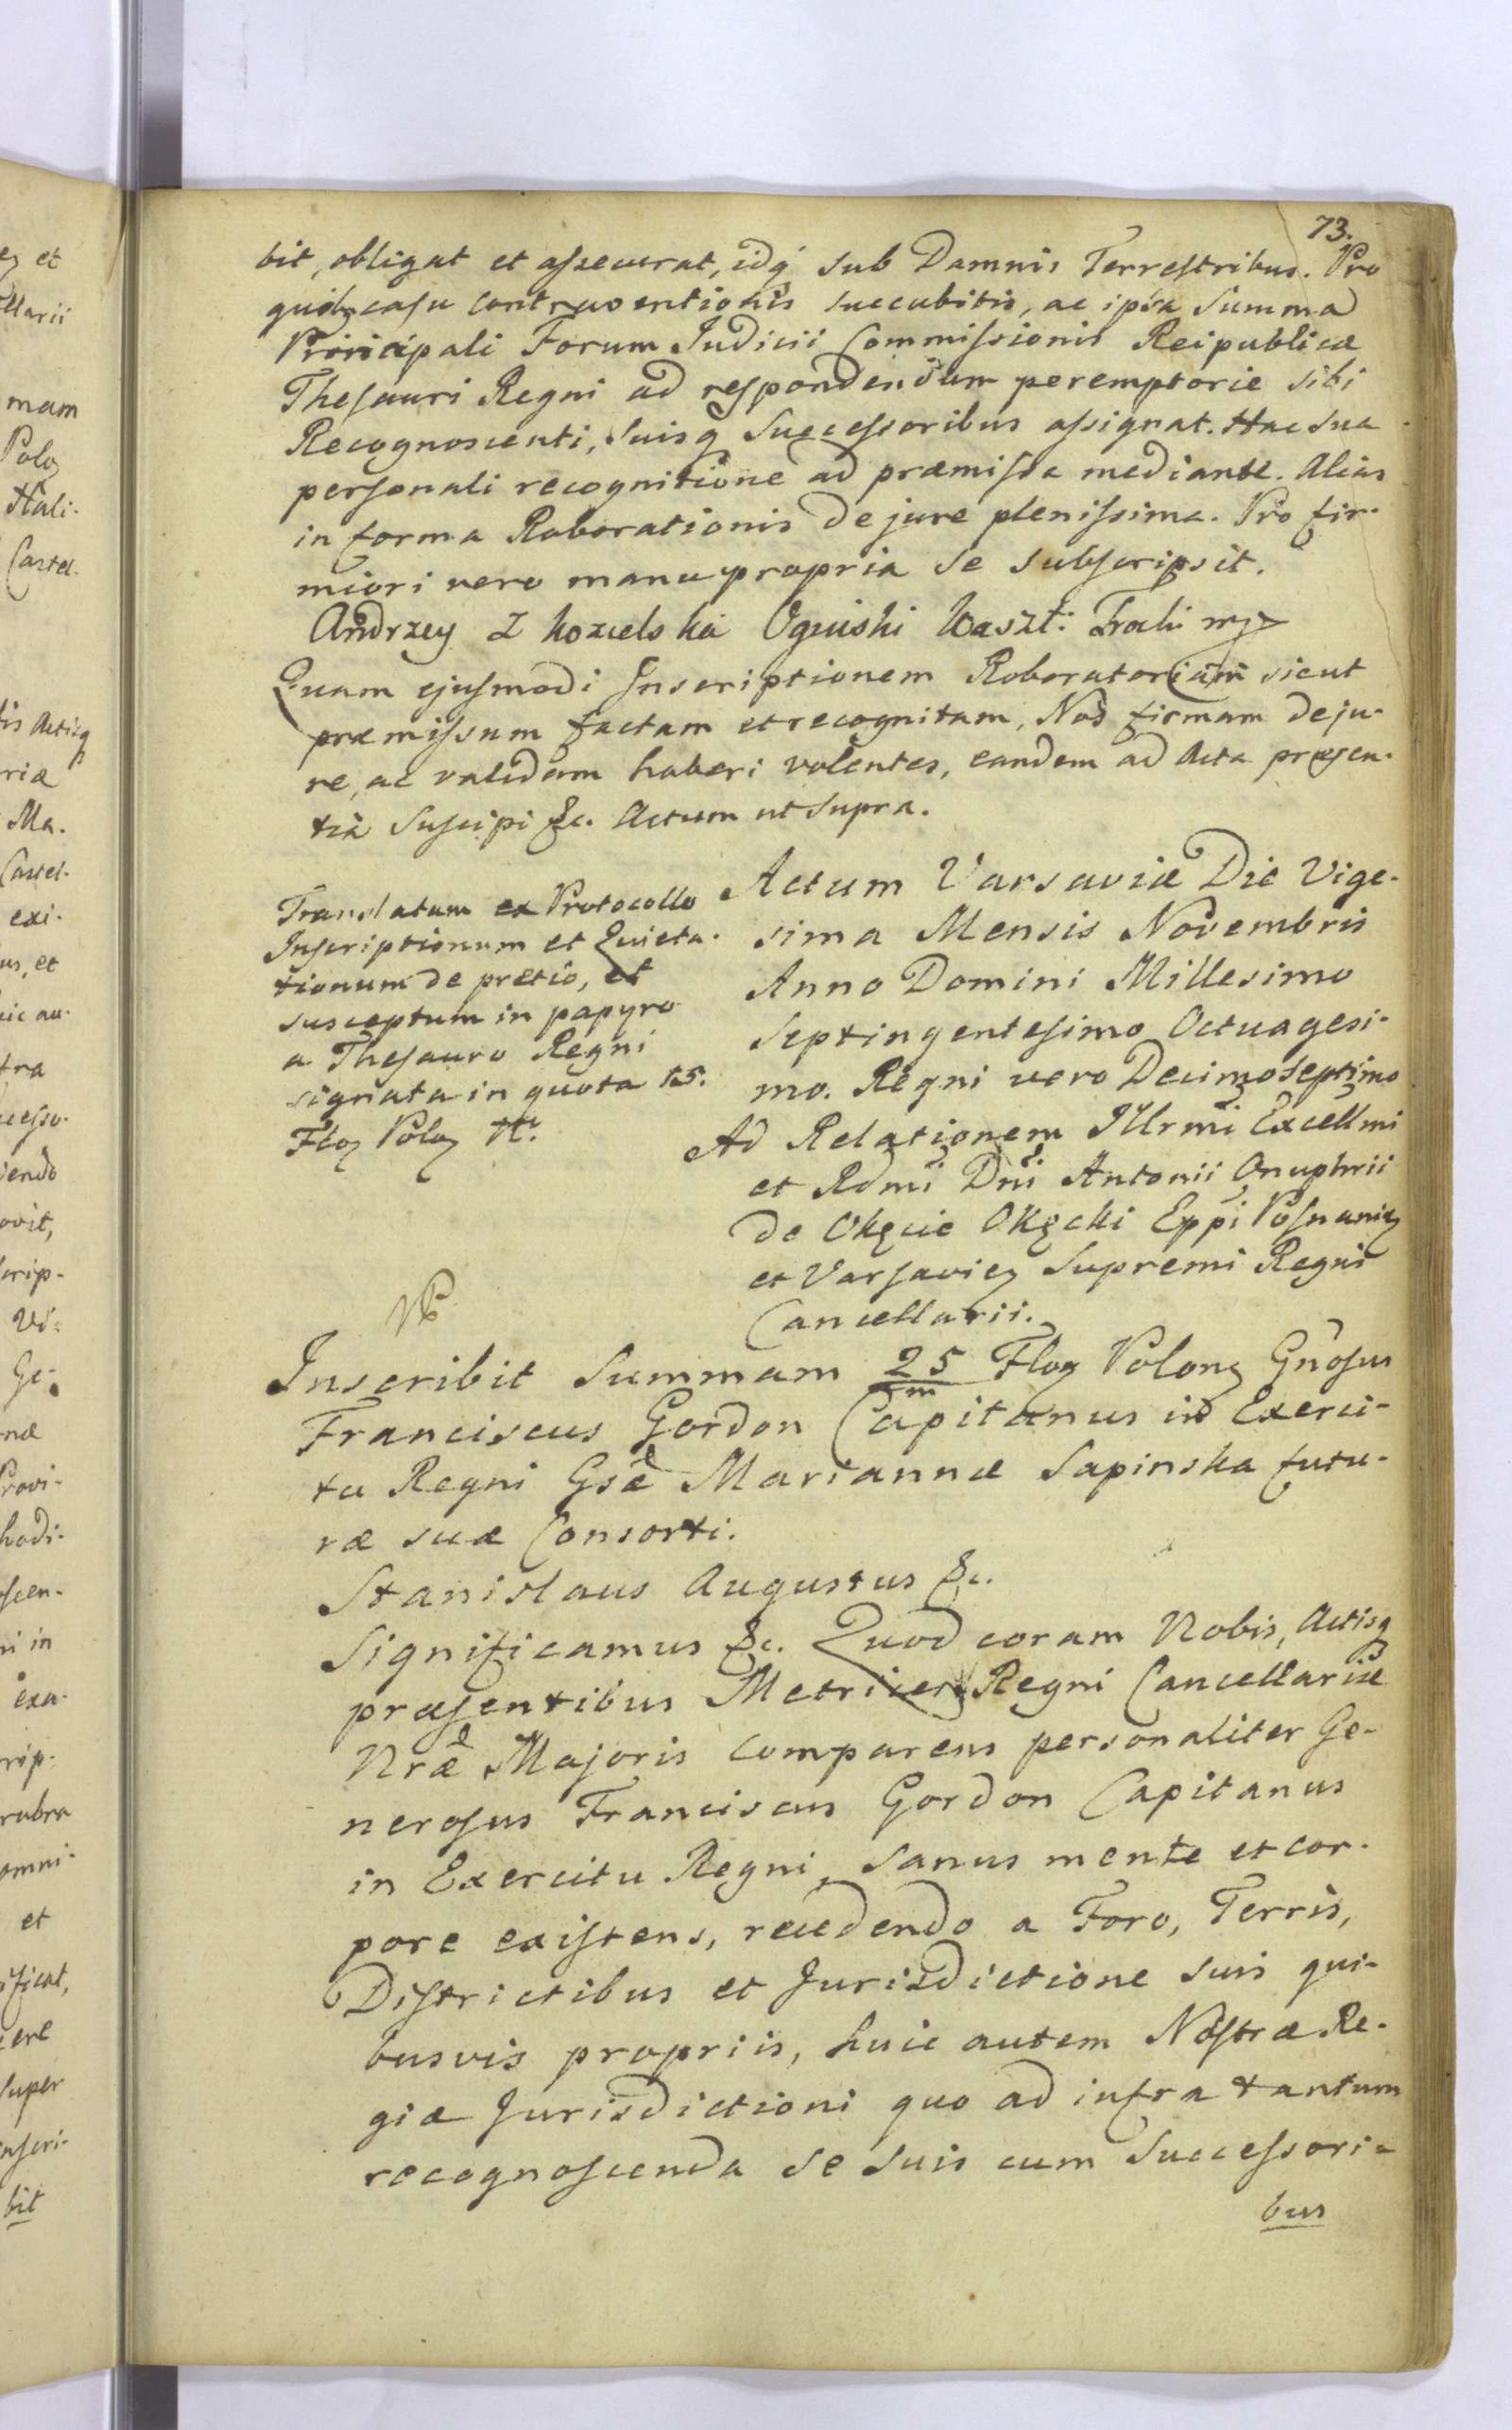 73.
bit, obligat et assecurat, idq́ sub Damnis Terrestribus. Pro
quibꝫ casu contraventionis succubitis, ac ipsa Summa
Principali Forum Judicii Commissionis Reipublicæ
Thesauri Regni ad respondendum peremptorie sibi
Recognoscenti, suisq Successoribus assignat. Hac sua
personali recognitione ad præmissa mediante. Alias
in forma Roborationis de jure plenissima. Pro fir-
miori vero manu propria se subscripsit.
Andrzey z Kozielska Oginski Kaszt: Trocki mp
Quam ejusmodi Inscriptionem Roboratoriam sicut
præmissum factam et recognitam, Nos firmam de ju-
re, ac validam haberi volentes, eandem ad Acta præsen-
tia Suscipi &c. Actum ut supra.
Translatum ex Protocollo
Inscriptionum et Quieta-
tionum de pretio, et
susceptum in papyro
a Thesauro Regni
signata in quota 15.
Floꝝ Poloꝝ
Actum Varsaviæ Die Vige-
sima Mensis Novembris
Anno Domini Millesimo
Septingentesimo Octuagesi-
mo. Regni vero Decimo Septimo
Ad Relationem Illrmi Excellmi
et Rdmi Dni Antonii Onuphrii
de Okęcie Okęcki Eppi Posnanieꝫ
et Varsavieꝫ Supremi Regni
Cancellarii.
Inscribit Summam 25 m Floꝝ Polonꝝ Gnosus
Franciscus Gordon Capitanus in Exerci-
tu Regni Gsæ Mariannæ Sapinska futu-
ræ suæ Consorti.
Stanislaus Augustus &c.
Significamus &c. Quod coram Nobis, Actisq
præsentibus Metrices Regni Cancellariæ
Nræ Majoris comparens personaliter Ge-
nerosus Franciscus Gordon Capitanus
in Exercitu Regni, sanus mente et cor-
pore existens, recedendo a Foro, Terris,
Districtibus et Jurisdictione suis qui-
busvis propriis, huic autem Nostræ Re-
giæ Jurisdictioni quo ad infra tantum
recognoscenda se suis cum Successori-
bus